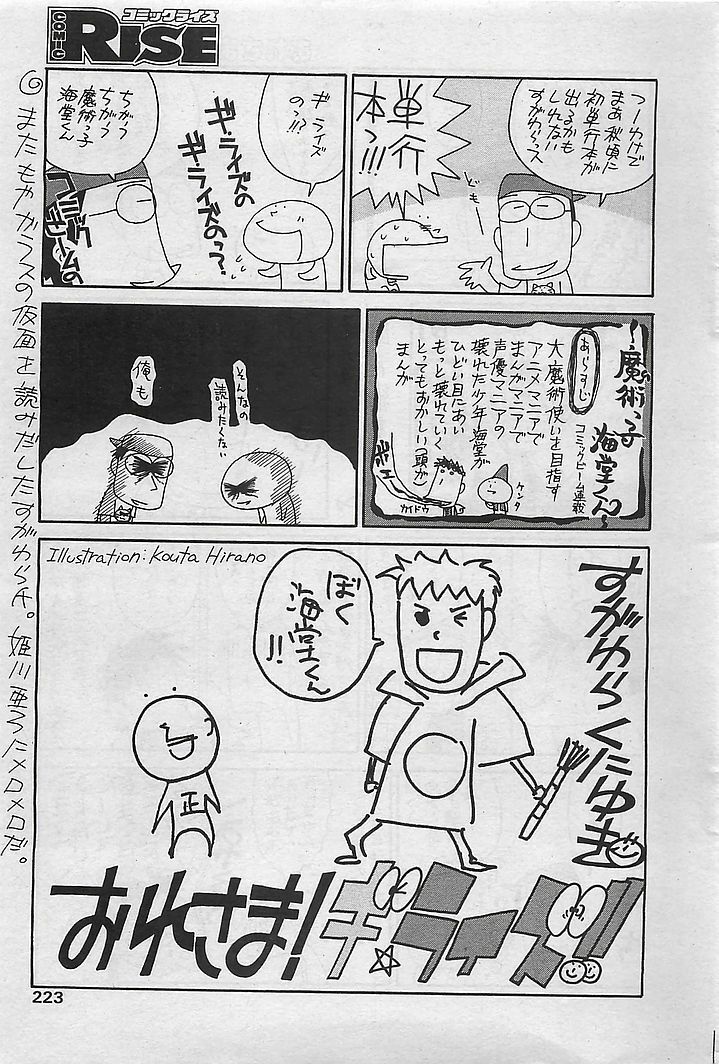 コミックライズ
COMIC
RISE
つーわけで
まぁ秋頃に
初単行本が
出るかも
しれない
すがわッス
どもー
単行
本っ!!!
ギ・ライズ
のっ!!?
ギ・ライズの
ギ・ライズのっ?
ちがう
ちがう
魔術っ子
海堂くん
コミック
ビームの
〜魔術っ子
海堂くん〜
コミックビーム連載
あらすじ
大魔術使いを目指す
アニメマニアで
まんがマニアで
声優マニアの
壊れた少年海堂が
ひどい目にあい
もっと壊れていく
とってもおかしい(頭が)
まんが
ケンタ
カイドウ
そんなの
読みたくない
俺も
Illustration: Kouta Hirano
すがわらくにゆき
ぼく
海堂くん
!!
正
おれさま!
ギ☆ライズ!!
またもやガラスの仮面を読みだしたすがわら氏。姫川亜弓にメロメロだ。
223